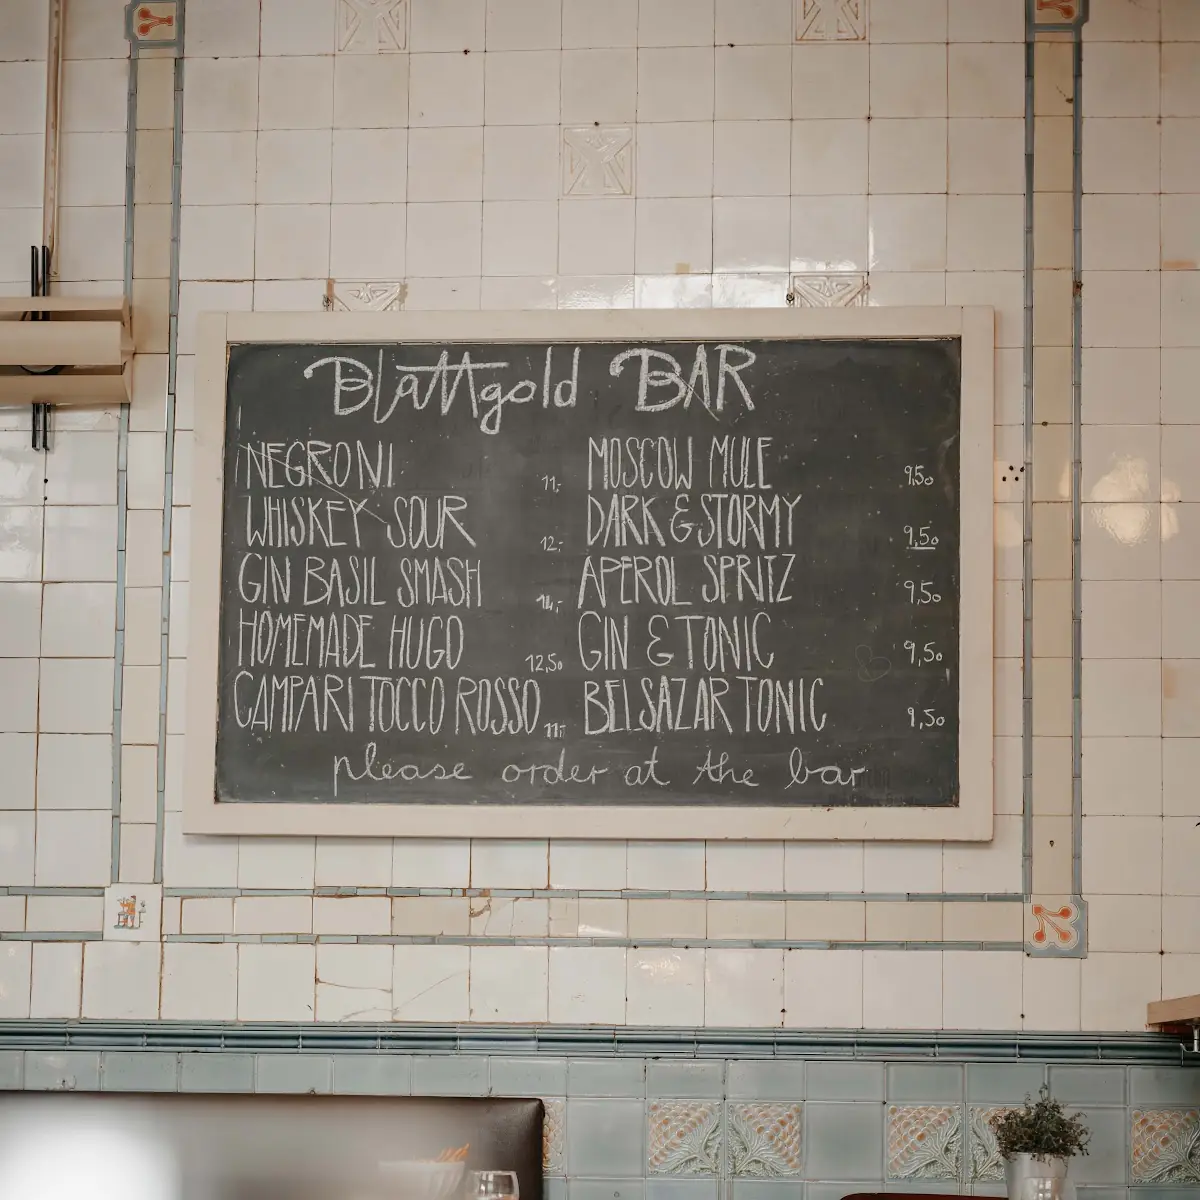 Blattgold BAR
NEGRONI 11,-
WHISKEY SOUR 12,-
GIN BASIL SMASH 14,-
HOMEMADE HUGO 12,50
CAMPARI TOCCO ROSSO 11,-
MOSCOW MULE 9,50
DARK & STORMY 9,50
APEROL SPRITZ 9,50
GIN & TONIC 9,50
BELSAZAR TONIC 9,50
please order at the bar